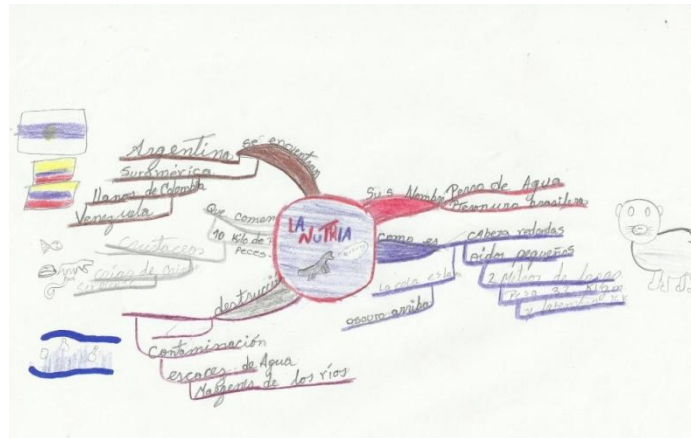 LA
NUTRIA
se encuentran
Argentina
Suramérica
llanos de Colombia
Venezuela
Que comen
10 Kilo de
Peces
crustaceos
destrucción
Contaminación
escaces de Agua
Margenes de los ríos
Sus Nombre
Perro de Agua
Pteronura brasilera
como es
cabeza redondas
oidos pequeños
2 Metros de largo
La cola es
oscuro arriba